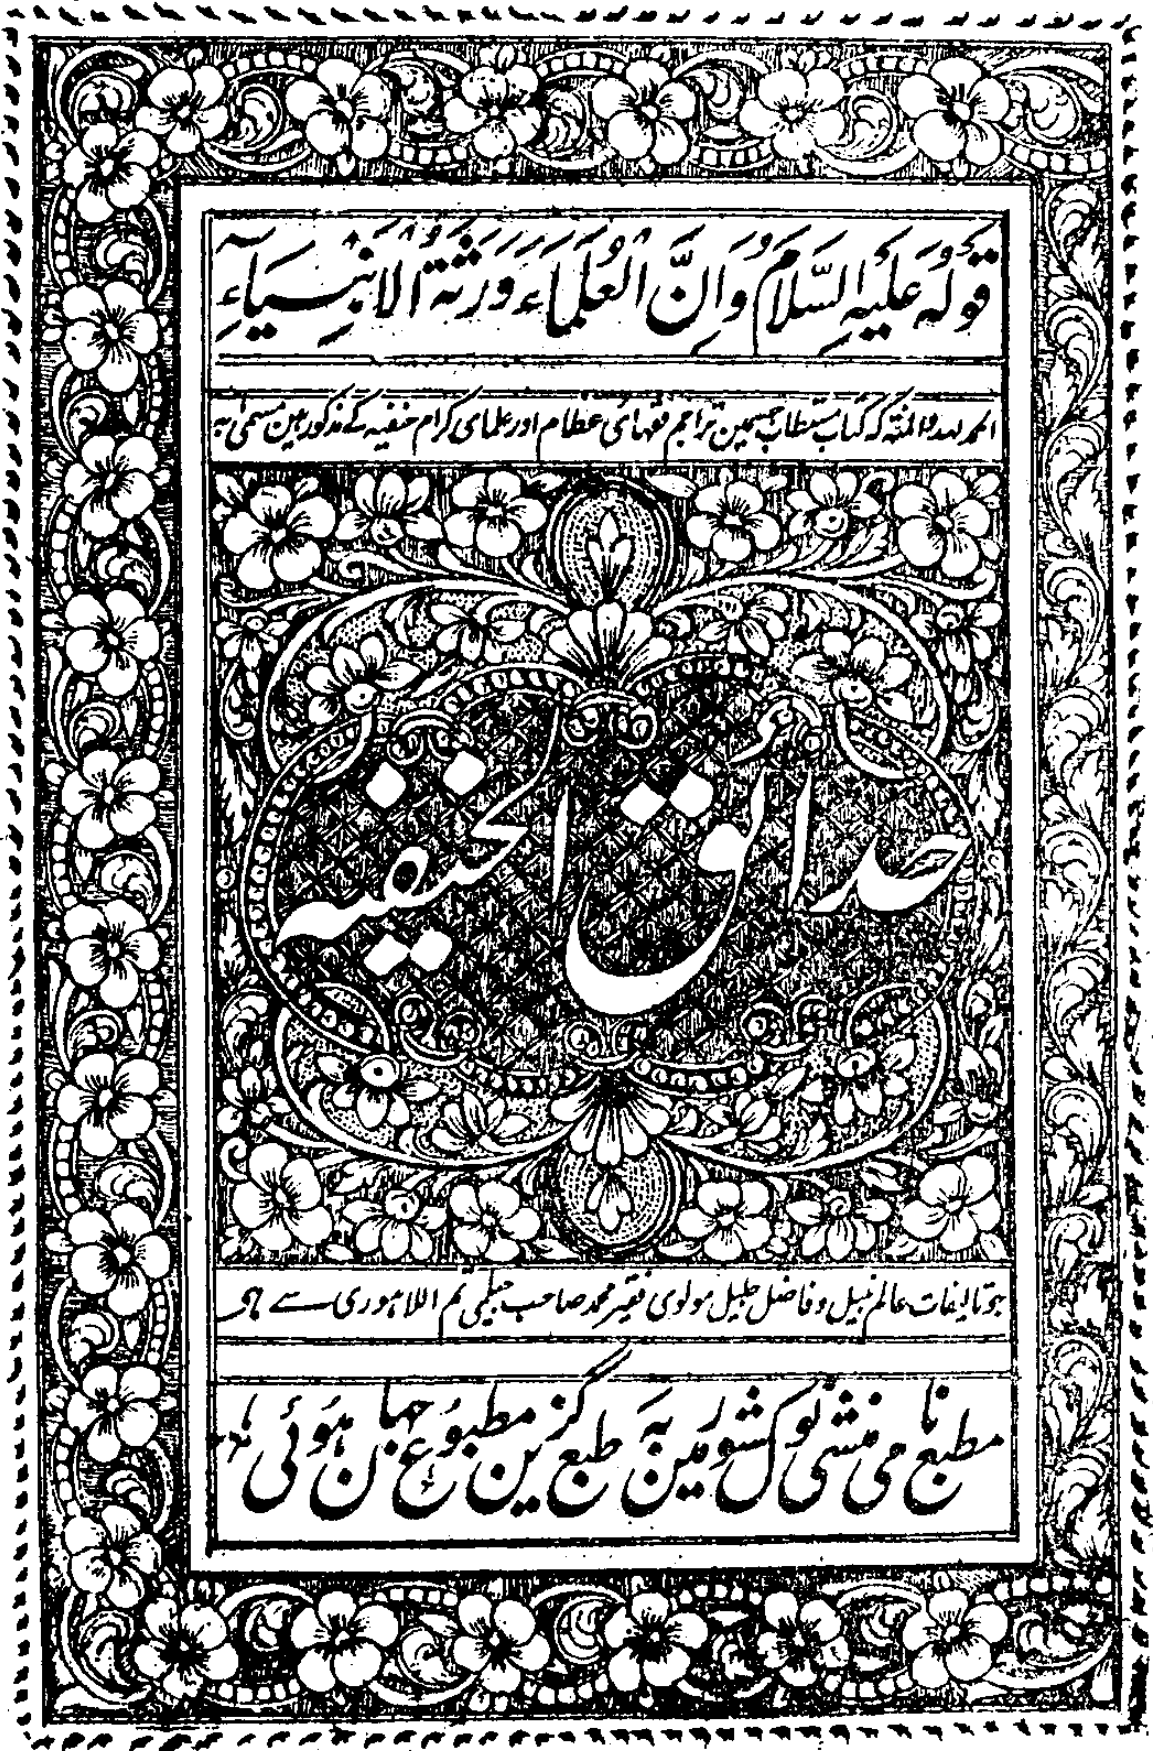 قَوْلُهُ عَلَيْهِ السَّلَامُ وَاِنَّ الْعُلَمَاءَ وَرَثَةُ الْاَنْبِيَاءِ
الحمد للہ والمنہ کہ کتاب مستطاب جسمین تراجم فقہای عظام اور علمای کرام حنفیہ کے مذکور ہین مسمی بہ
حدائق الحنفیہ
جو تالیفات عالم نبیل و فاضل جلیل مولوی فقیر محمد صاحب جہلمی ثم اللاہوری سے ہی
مطبع نامی منشی نولکشور مین بہ طبع گزین مطبوع جہان ہوئی